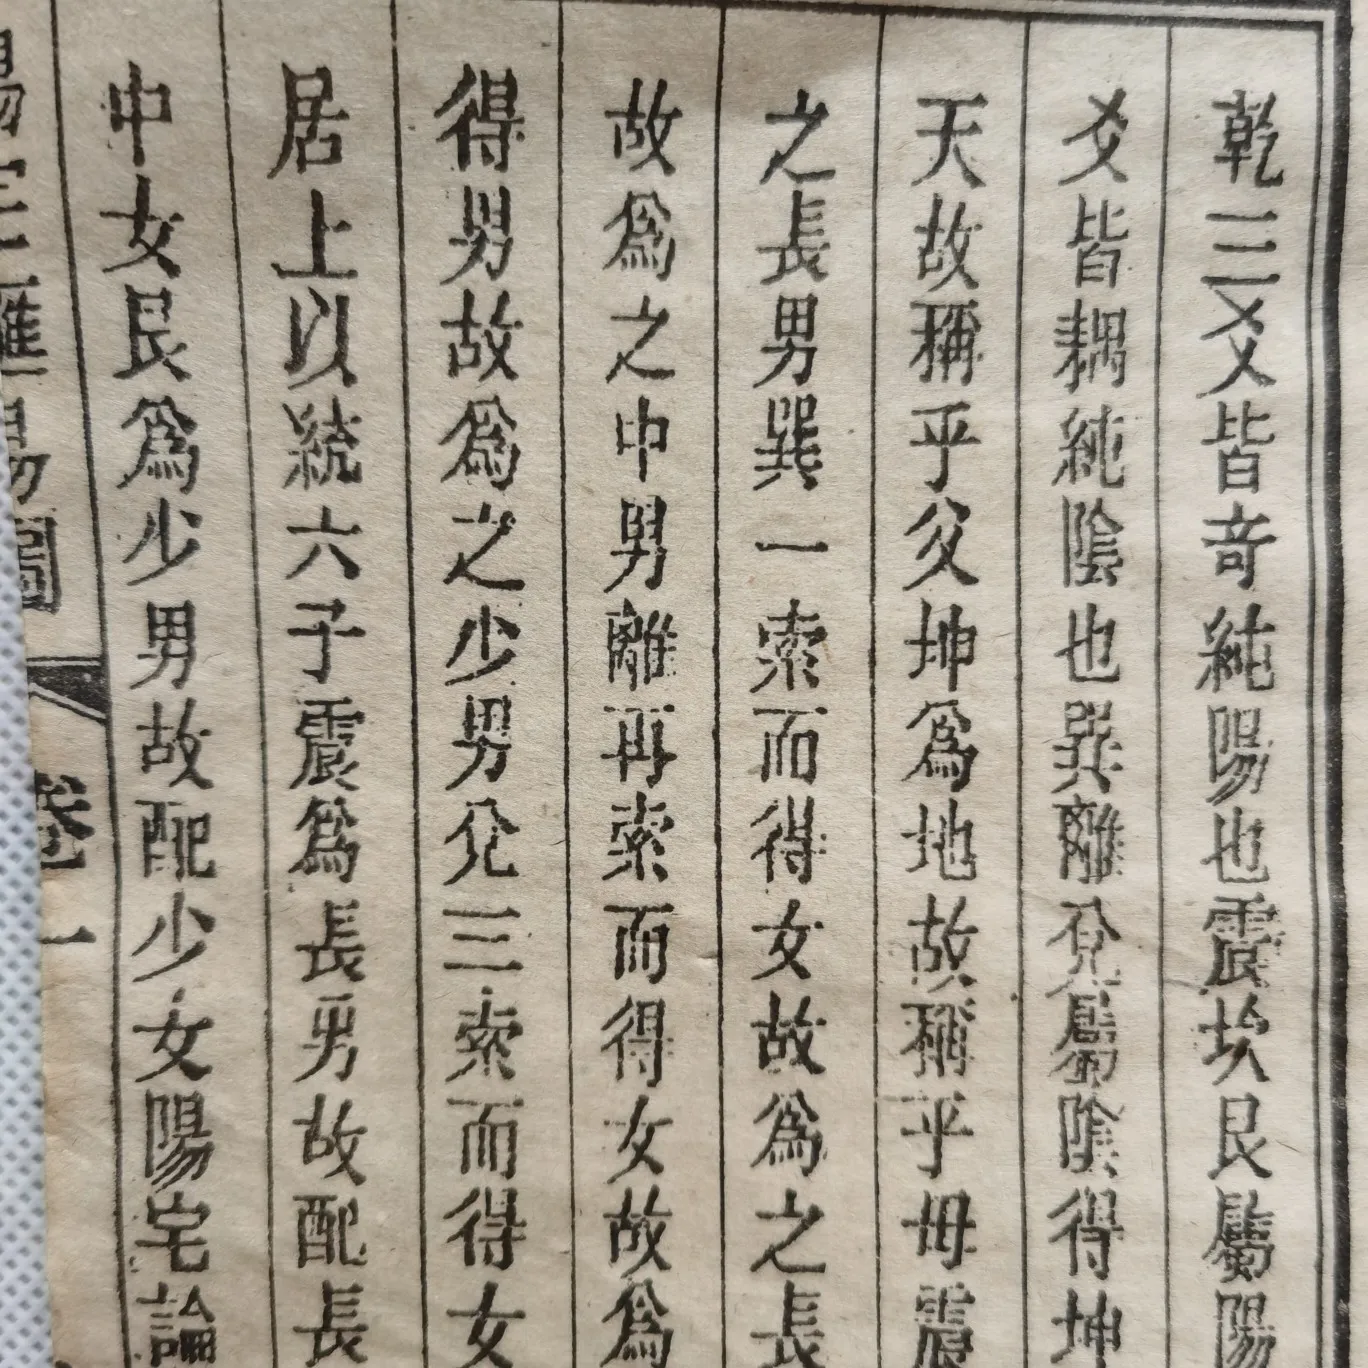 乾三爻皆竒純陽也震坎艮屬陽
爻皆耦純陰也巽離兌屬陰得坤
天故稱乎父坤爲地故稱乎母震
之長男巽一索而得女故爲之長
故爲之中男離再索而得女故爲
得男故爲之少男兌三索而得女
居上以統六子震爲長男故配長
中女艮爲少男故配少女陽宅論
陽宅
易圖
卷一